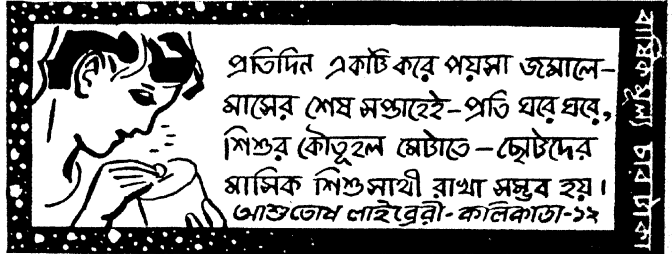 প্রতিদিন একটি করে পয়সা জমালে-
মাসের শেষ সপ্তাহেই-প্রতি ঘরে ঘরে,
শিশুর কৌতূহল মেটাতে-ছোটদের
মাসিক শিশুসাথী রাখা সম্ভব হয়।
আশুতোষ লাইব্রেরী-কলিকাতা-১২
বার্ষিক মূল্য চার টাকা